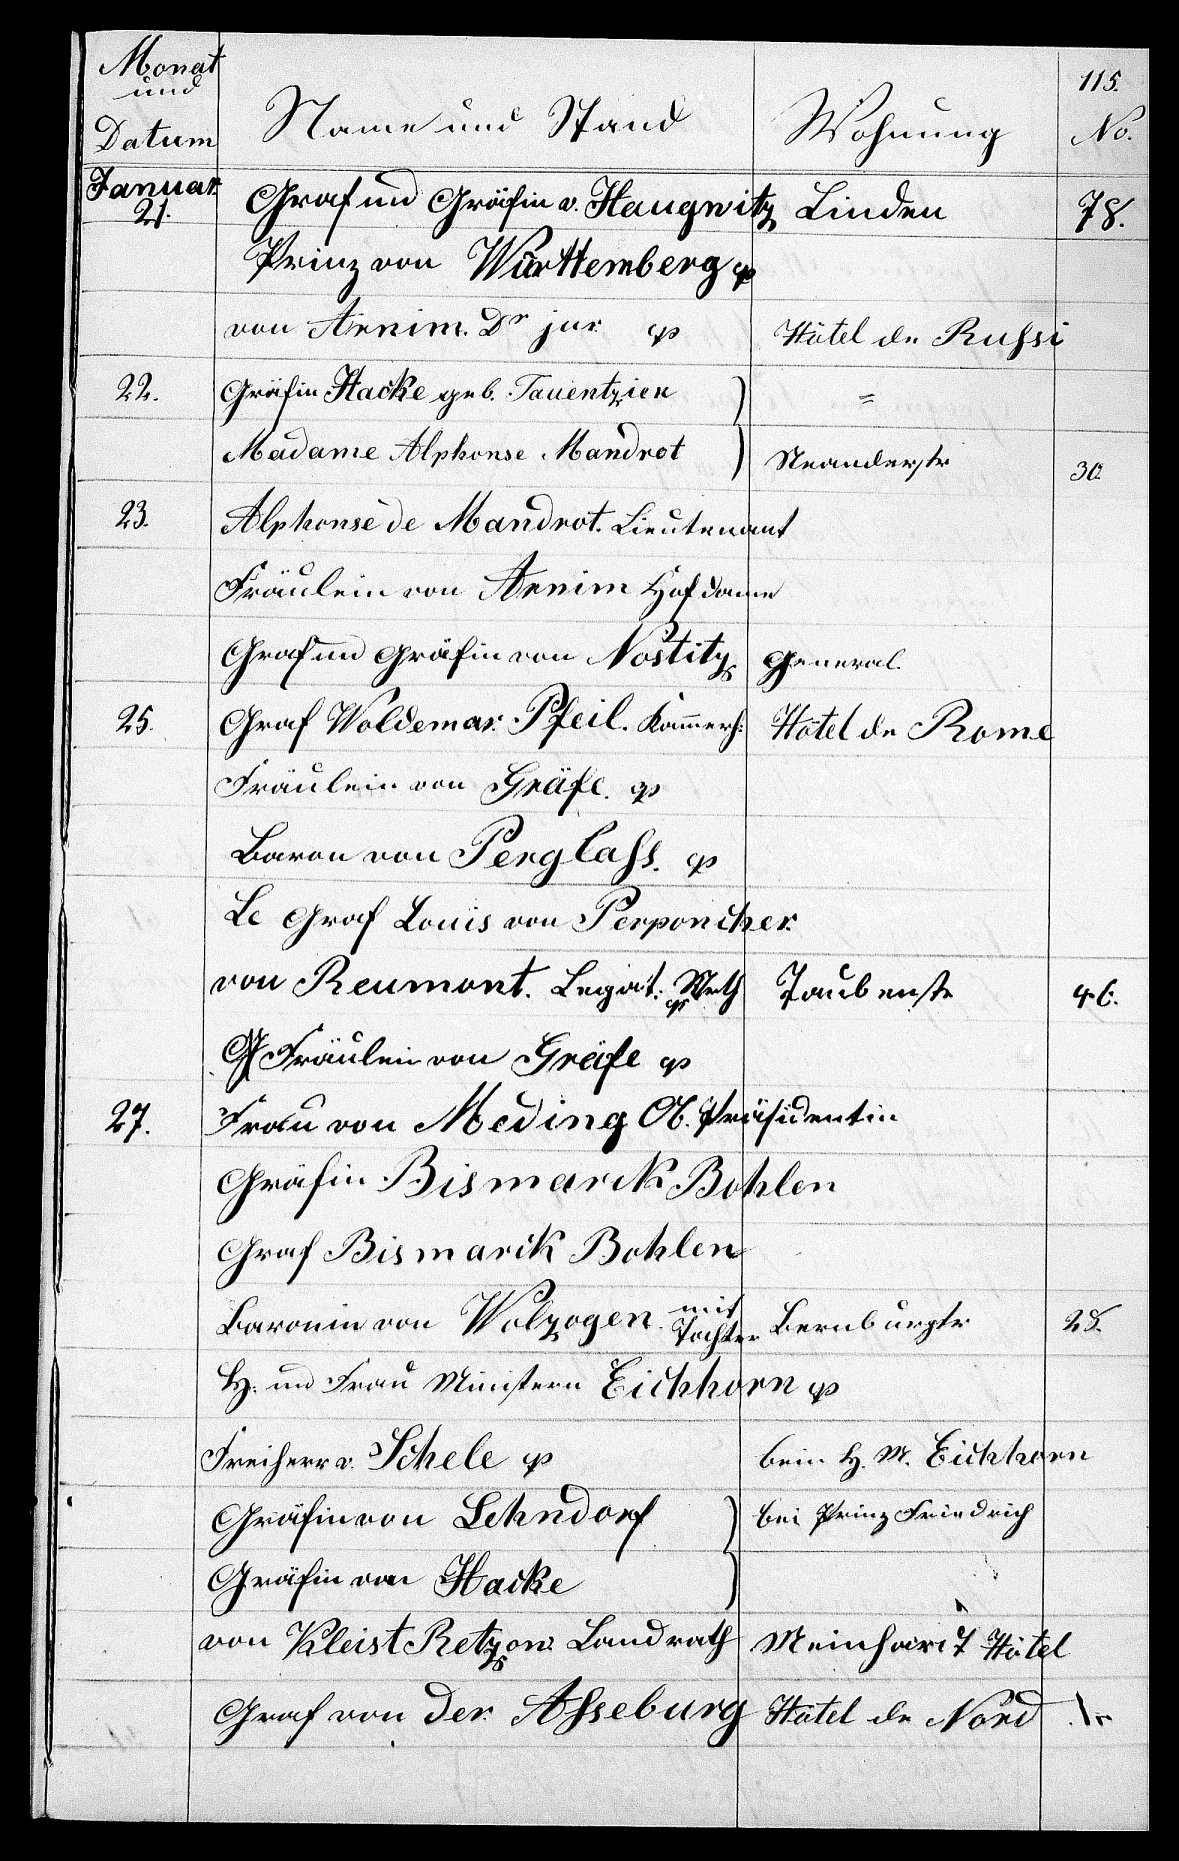 115.
Monat und Datum Name und Stand Wohnung No.
Januar. 21. Graf und Gräfin v. Haugwitz Linden 78.
Prinz von Württemberg
von Arnim. Dr jur. Hôtel de Russi
22. Gräfin Hacke geb. Tauentzien ) =
Madame Alphonse Mandrot ) Neanderstr 30.
23. Alphonse de Mandrot. Lieutenant
Fräulein von Arnim Hofdame
Graf und Gräfin von Nostitz General.
25. Graf Woldemar. Pfeil. Kam̄erh: Hôtel de Rome
Fräulein von Gräfe.
Baron von Perglass.
Le Graf Louis von Perponcher.
von Reumont. Legat: Rth Taubenstr 46.
Fräulein von Gräfe
27. Frau von Meding Ob. Präsidentin
Gräfin Bismarck Bohlen
Graf Bismarck Bohlen
Baronin von Wolzogen. mit Tochter Bernburgstr 28.
H. und Frau Ministern Eichhorn
Freiherr v. Schele beim H. M. Eichhorn
Gräfin von Lehndorf } bei Prinz Friedrich
Gräfin von Hacke
von Kleist Retzow. Landrath Meinhardt Hôtel
Graf von der Asseburg Hôtel de Nord